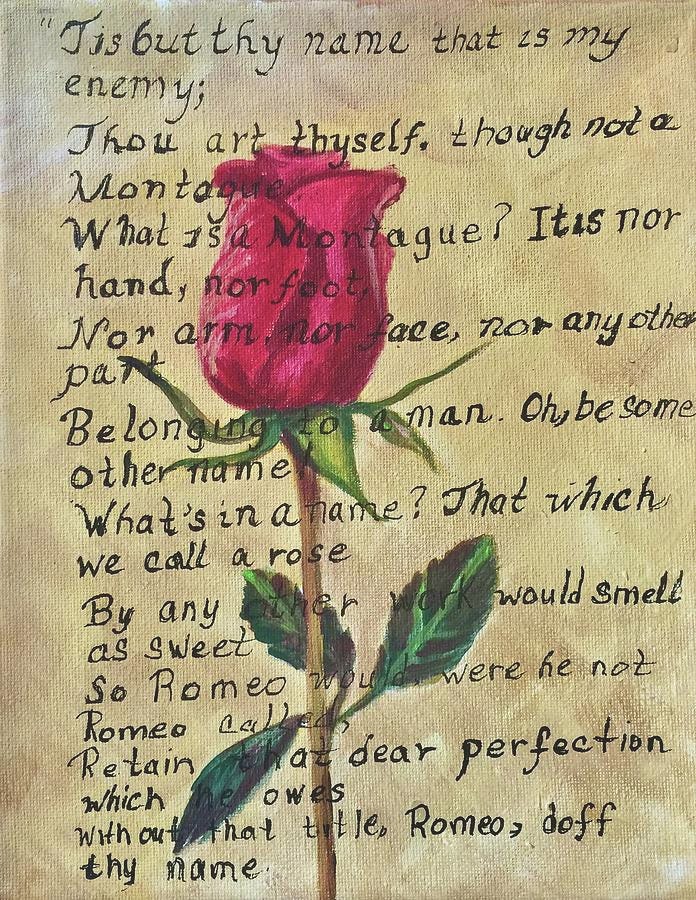 "Tis but thy name that is my
enemy;
Thou art thyself. though not a
Montague
What is a Montague? It is nor
hand, nor foot,
Nor arm, nor face, nor any other
part
Belonging to a man. Oh, be some
other name!
What's in a name? That which
we call a rose
By any other work would smell
as sweet
So Romeo would, were he not
Romeo called,
Retain that dear perfection
which he owes
without that title, Romeo, doff
thy name.